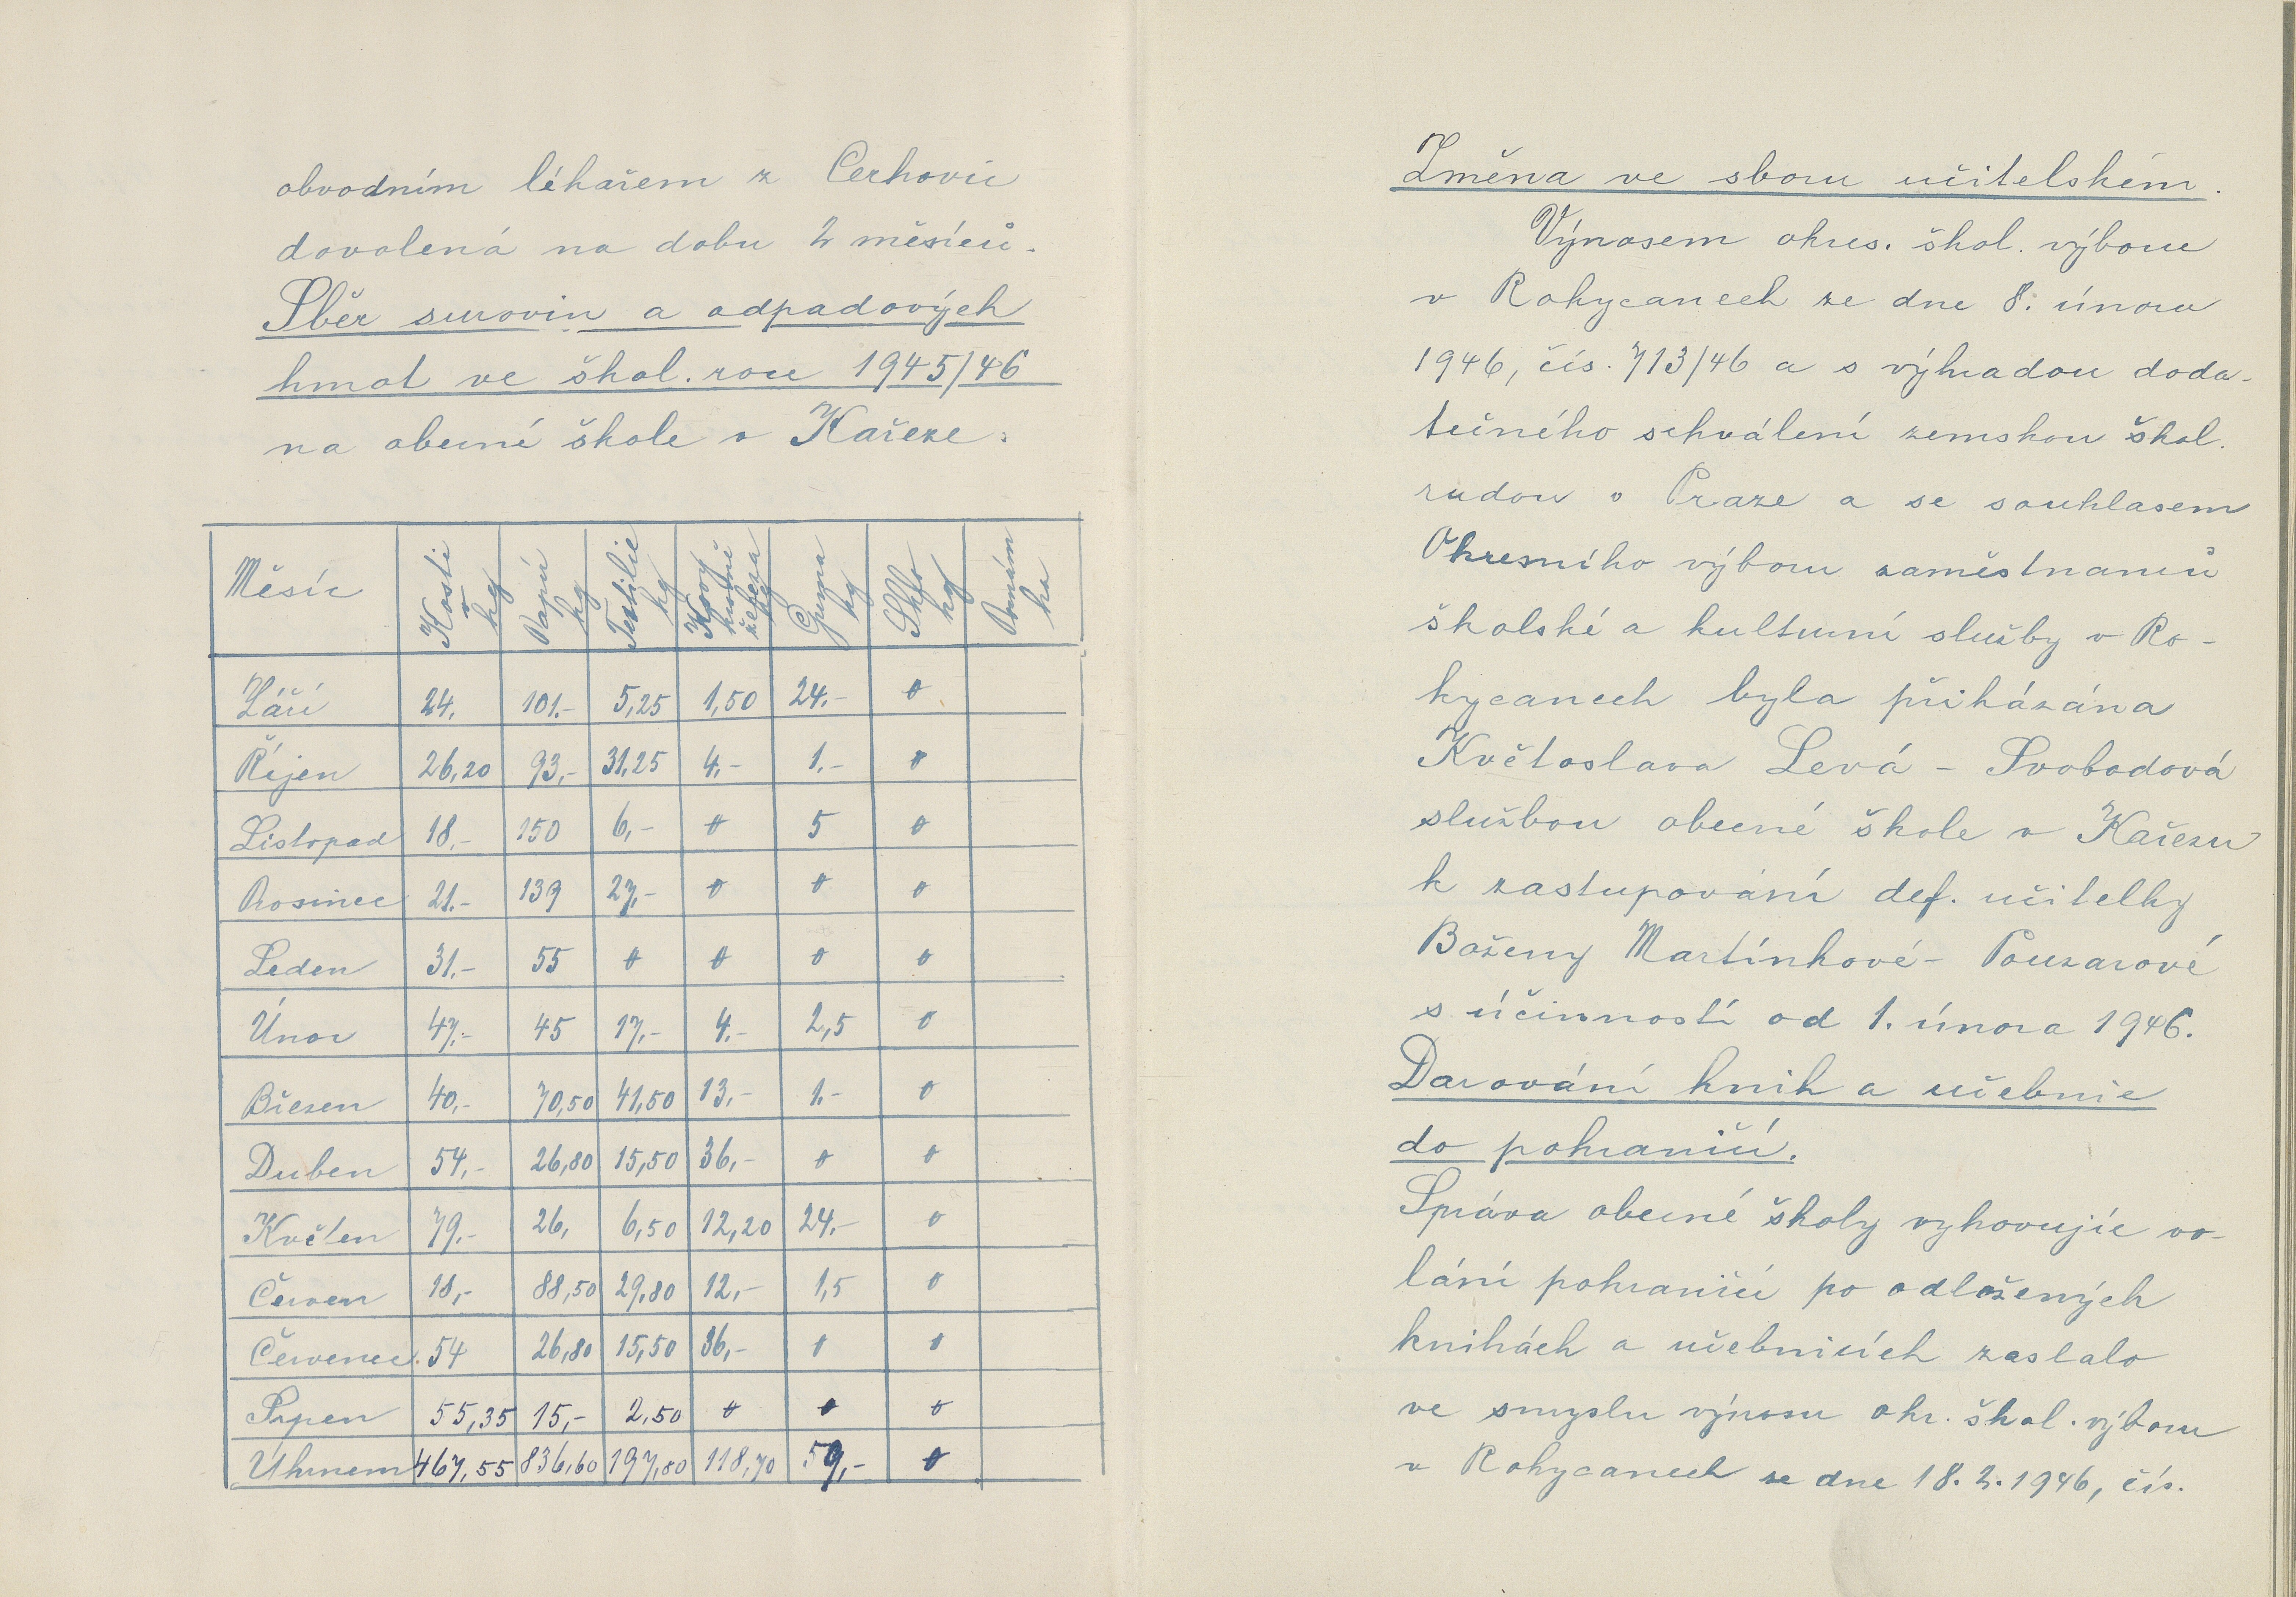 obvodním lékařem z Cerhovic
dovolená na dobu 2 měsíců.
Sběr surovin a odpadových
hmot ve škol. roce 1945/46
na obecné škole v Kařeze:
Měsíc Kosti v kg Papír kg Textilie kg Kovy kromě železa kg Guma kg Sklo kg Poznámka
Září 24. 101.- 5,25 1,50 24.- 0
Říjen 26,20 93,- 31,25 4.- 1.- 0
Listopad 18.- 150 6,- 0 5 0
Prosinec 21.- 139 27,- 0 0 0
Leden 31.- 55 0 0 0 0
Únor 47.- 45 17,- 4.- 2,5 0
Březen 40,- 70,50 41,50 13,- 1.- 0
Duben 54,- 26,80 15,50 36,- 0 0
Květen 79.- 26, 6,50 12,20 24.- 0
Červen 18,- 88,50 29,80 12,- 1,5 0
Červenec 54 26,80 15,50 36,- 0 0
Srpen 55,35 15,- 2,50 0 0 0
Úhrnem 467,55 836,60 197,80 118,70 59,- 0
Změna ve sboru učitelském.
Výnosem okres. škol. výboru
v Rokycanech ze dne 8. února
1946, čís. 713/46 a s výhradou doda-
tečného schválení zemskou škol.
radou v Praze a se souhlasem
Okresního výboru zaměstnanců
školské a kulturní služby v Ro-
kycanech byla přikázána
Květoslava Levá - Svobodová
službou obecné škole v Kařezu
k zastupování def. učitelky
Boženy Martínkové - Pouzarové
s účinností od 1. února 1946.
Darování knih a učebnic
do pohraničí.
Správa obecné školy vyhovujíc vo-
lání pohraničí po odložených
knihách a učebnicích zaslalo
ve smyslu výnosu okr. škol. výboru
v Rokycanech ze dne 18.2.1946, čís.